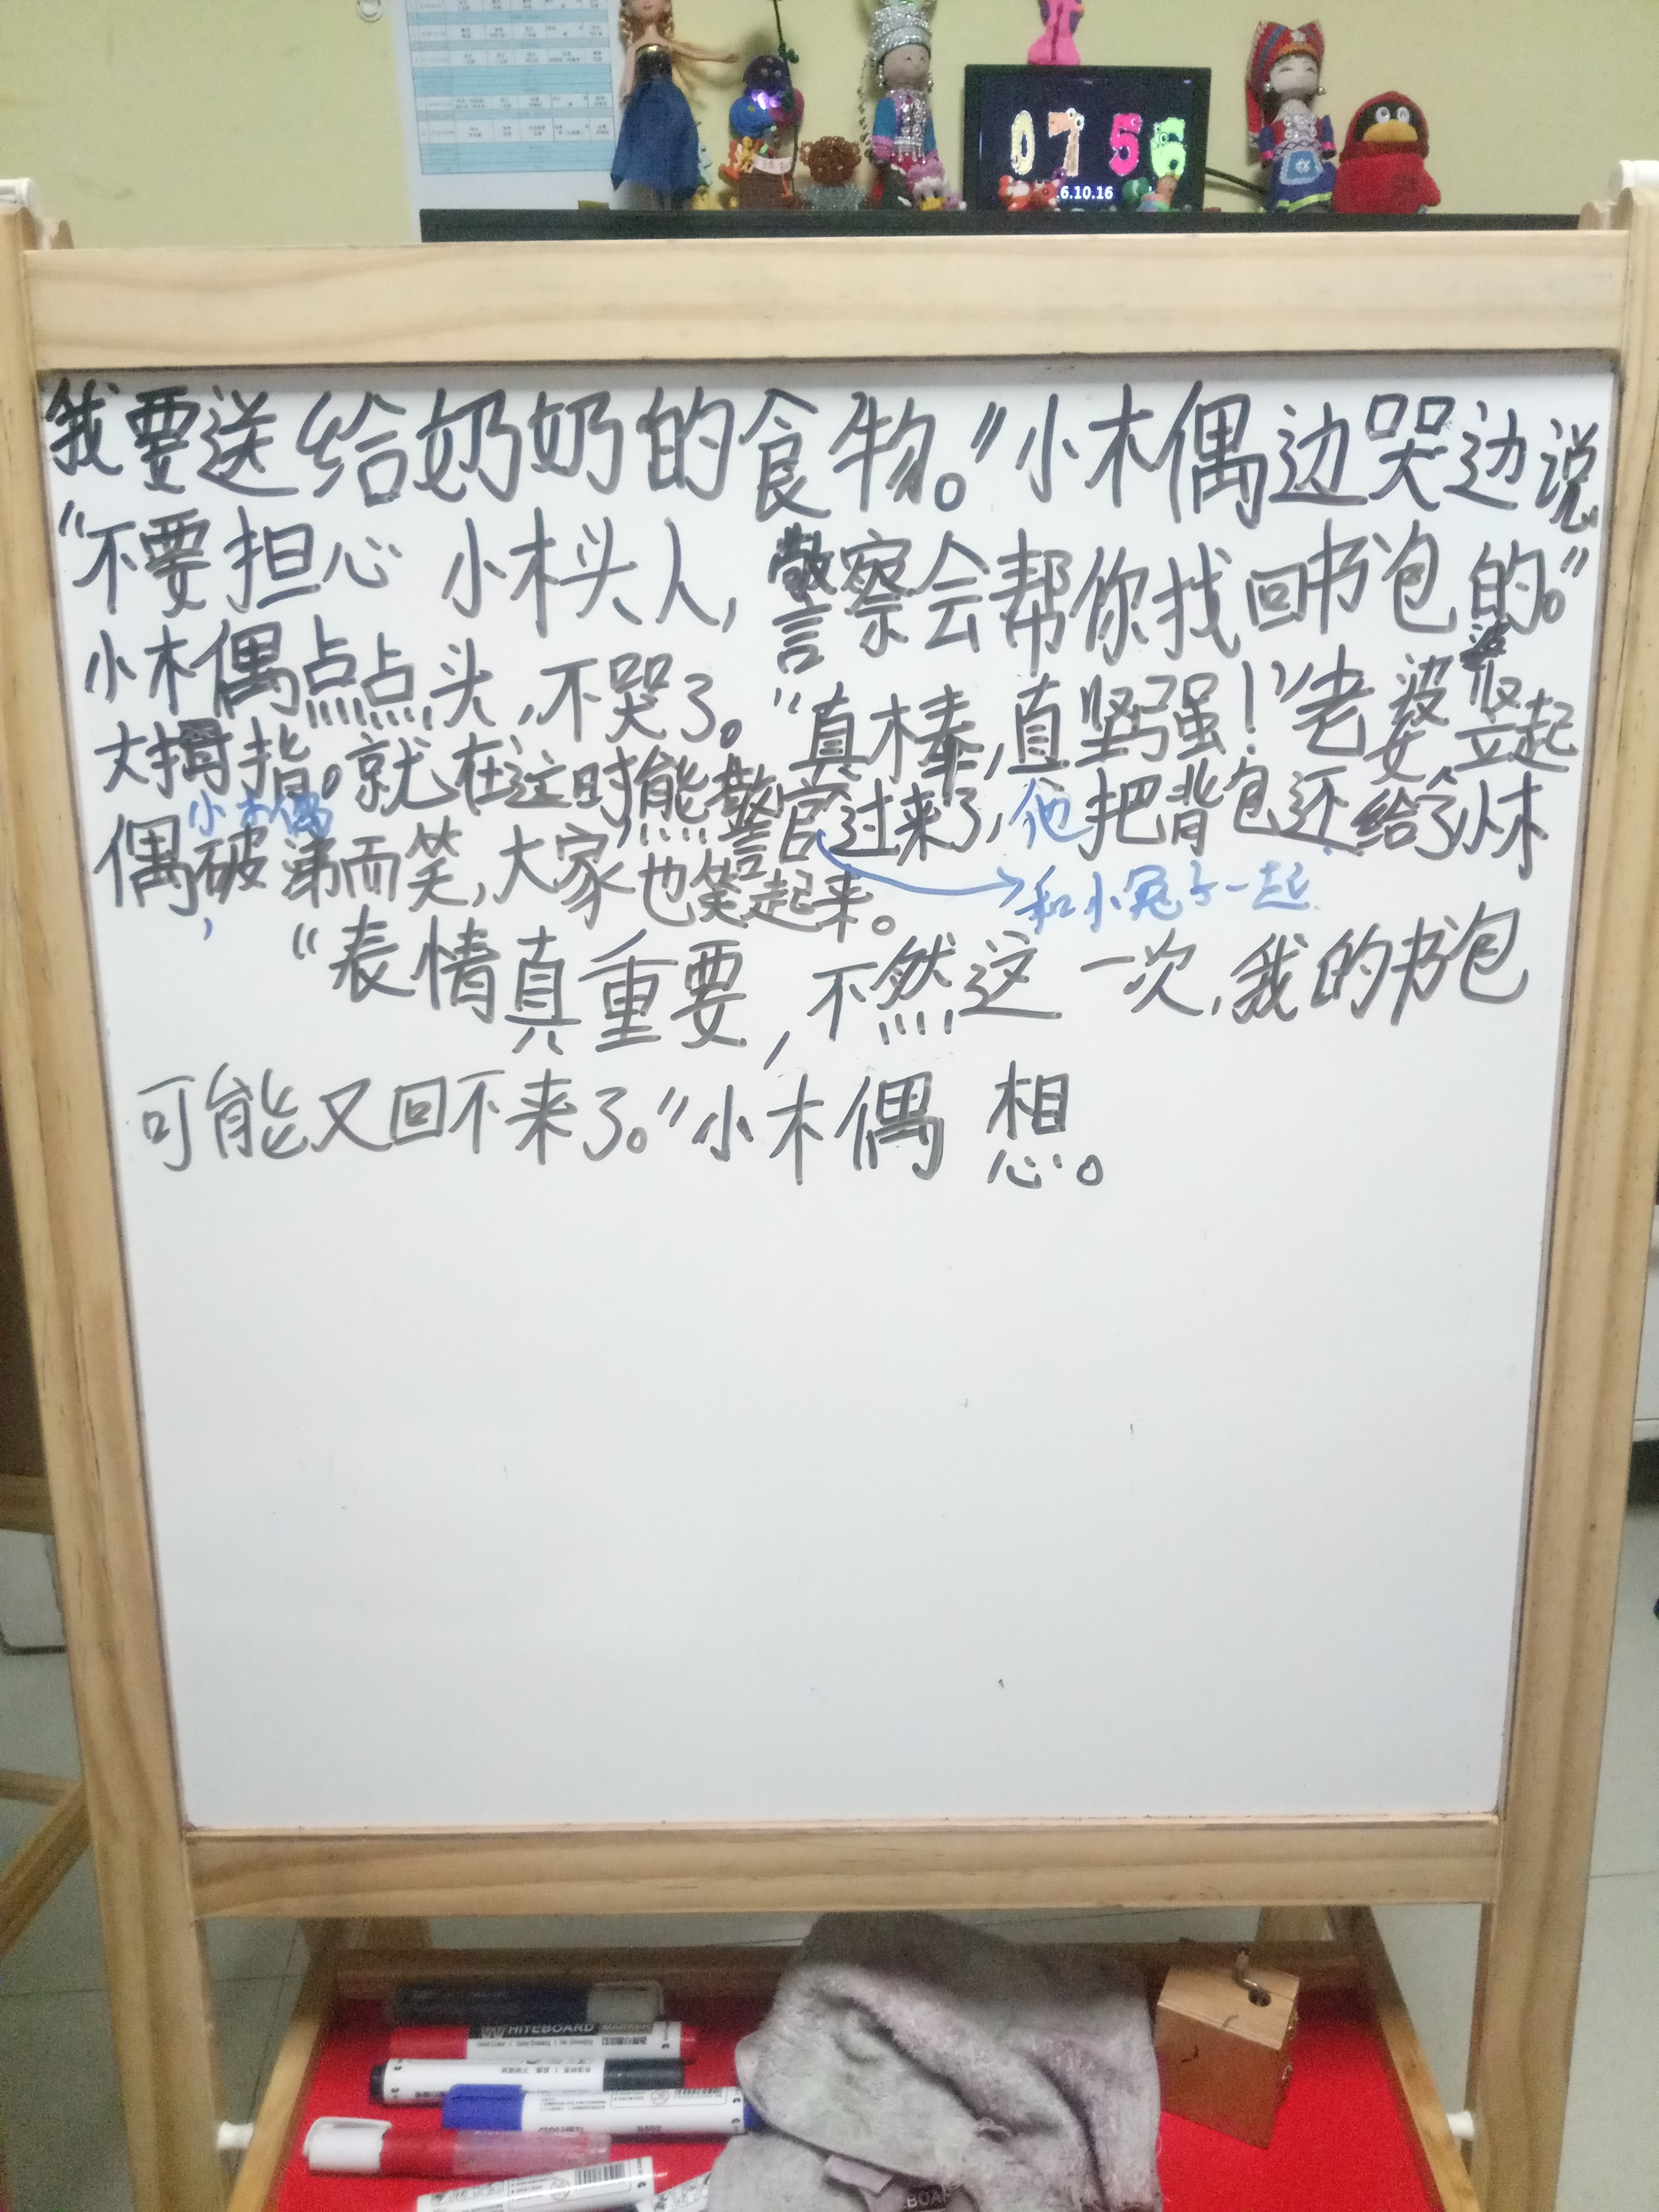 07 56
6.10.16
我要送给奶奶的食物。”小木偶边哭边说
“不要担心 小木头人，警察会帮你找回书包的。”
小木偶点点头，不哭了。“真棒，真坚强！”老婆婆竖起
大拇指。就在这时熊警官过来了，他把背包还给了小木
小木偶
偶破涕而笑，大家也笑起来。
和小兔子一起
，
“表情真重要，不然这一次，我的书包
可能又回不来了。”小木偶 想。
WHITEBOARD MARKER